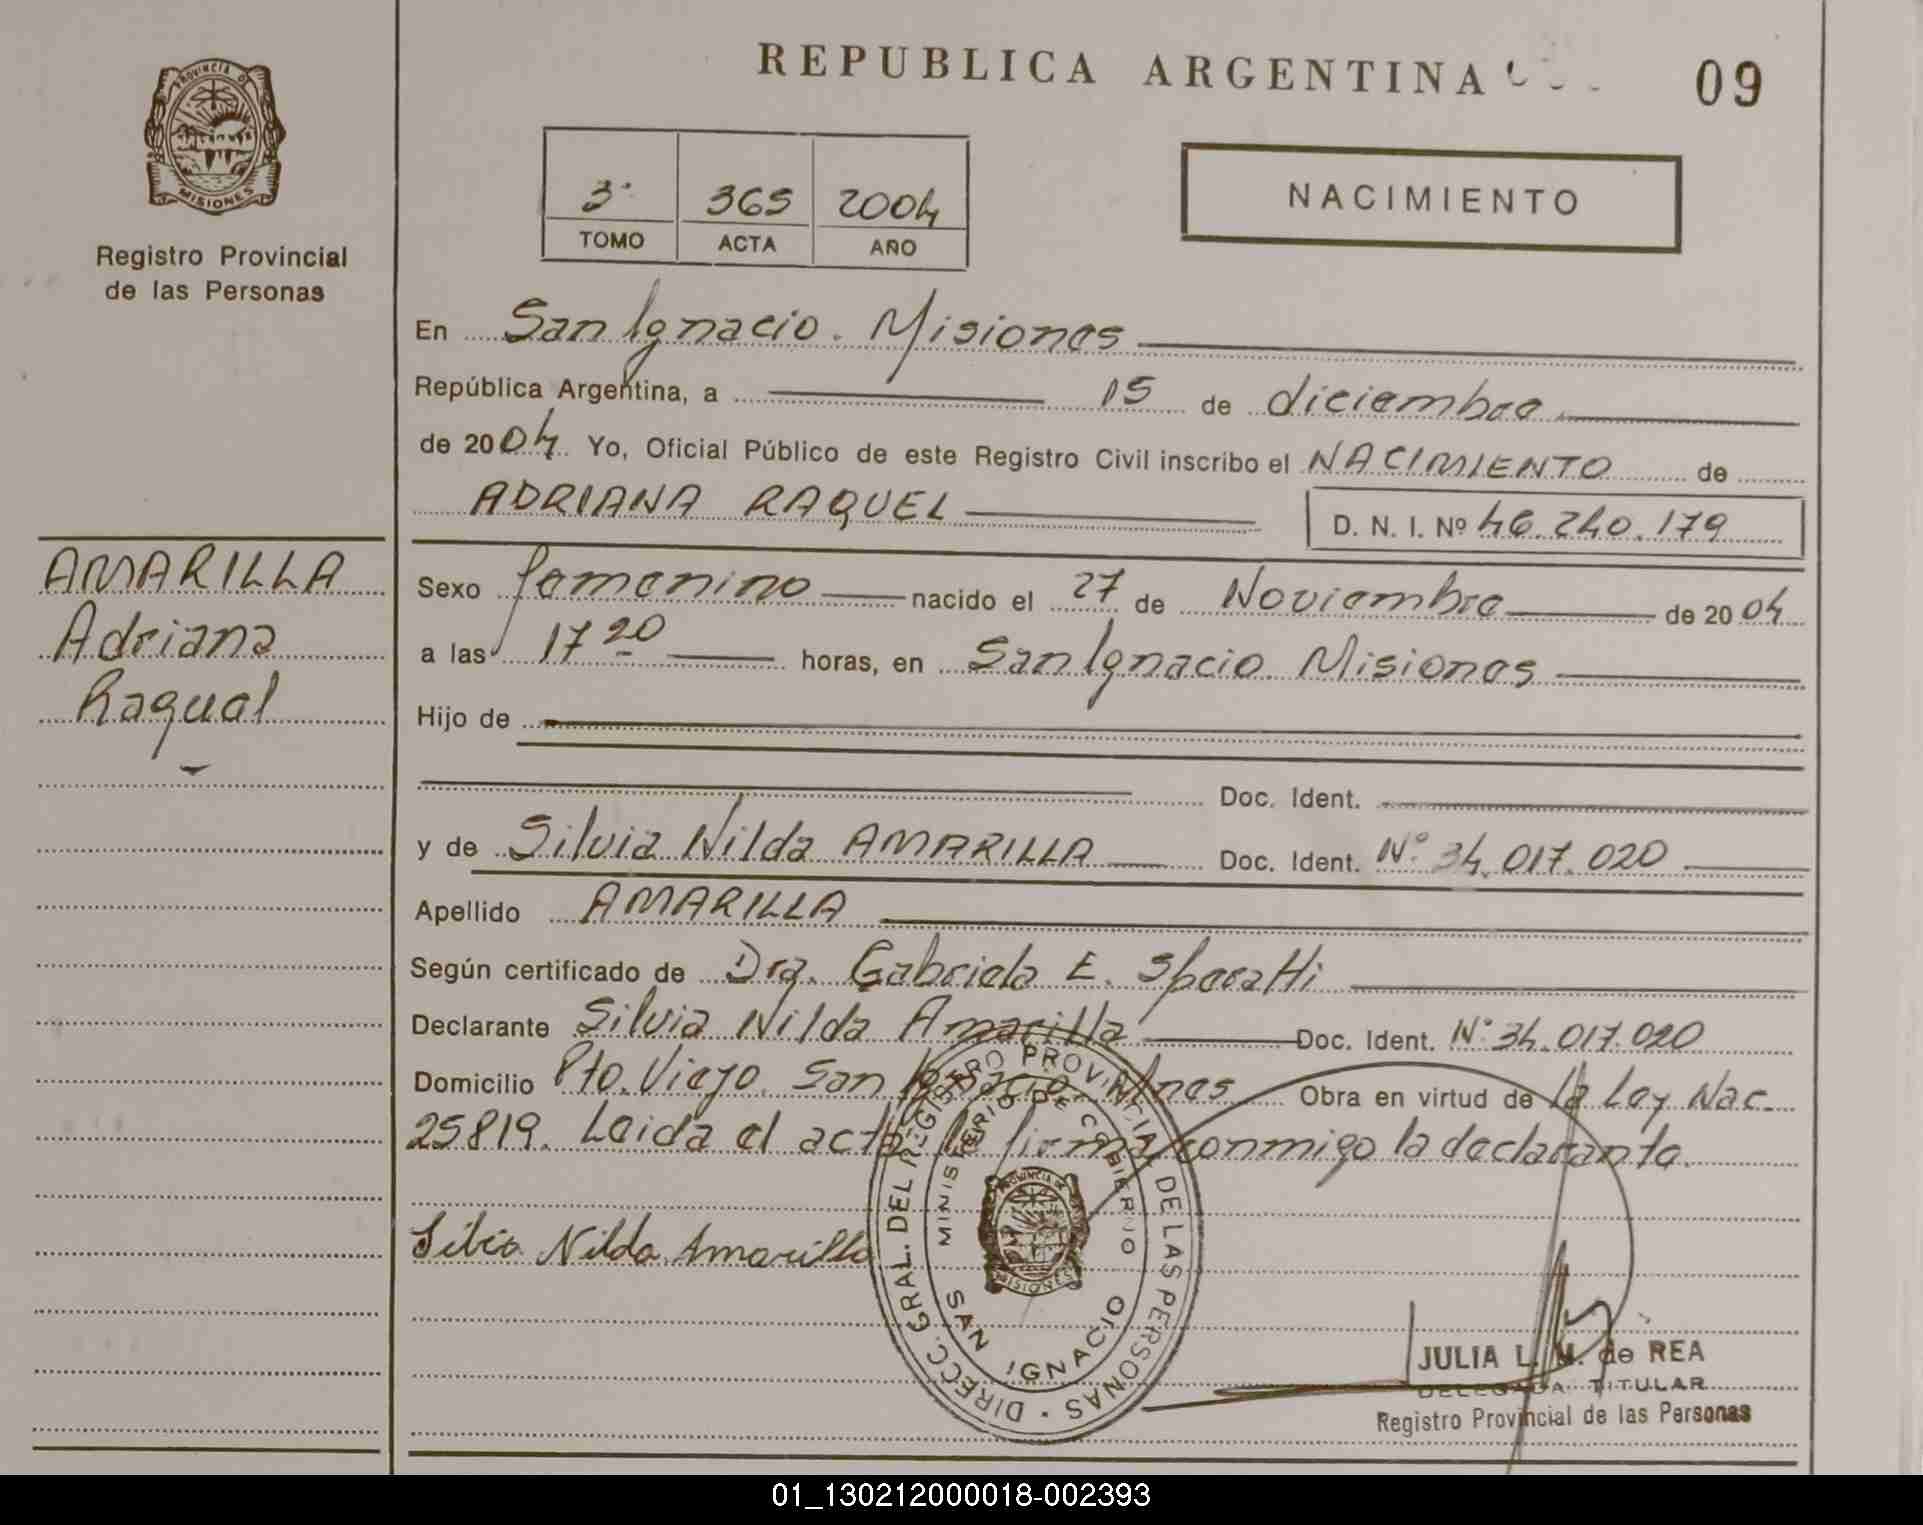 REPUBLICA ARGENTINA
09
PROVINCIA DE
MISIONES
Registro Provincial
de las Personas
3° 365 2004
TOMO ACTA AÑO
NACIMIENTO
En San Ignacio. Misiones
República Argentina, a 15 de diciembre
de 2004 Yo, Oficial Público de este Registro Civil inscribo el NACIMIENTO de
ADRIANA RAQUEL D. N. I. Nº 46.240.179
AMARILLA
Adriana
Raquel
Sexo femenino nacido el 27 de Noviembre de 2004
a las 17 20 horas, en San Ignacio. Misiones
Hijo de
Doc. Ident.
y de Silvia Nilda AMARILLA Doc. Ident. Nº 34.017.020
Apellido AMARILLA
Según certificado de Dra. Gabriela E. Speratti
Declarante Silvia Nilda Amarilla Doc. Ident. Nº 34.017.020
Domicilio Pto. Viejo. San Ignacio. Mnes Obra en virtud de la Ley Nac.
25819. Leida el acta la firma conmigo la declarante.
Silvia Nilda Amarilla
DIRECC. GRAL. DEL REGISTRO PROVINCIAL DE LAS PERSONAS
MINISTERIO DE GOBIERNO
SAN IGNACIO
PROVINCIA DE
MISIONES
JULIA L. M. de REA
DELEGADA TITULAR
Registro Provincial de las Personas
01_130212000018-002393